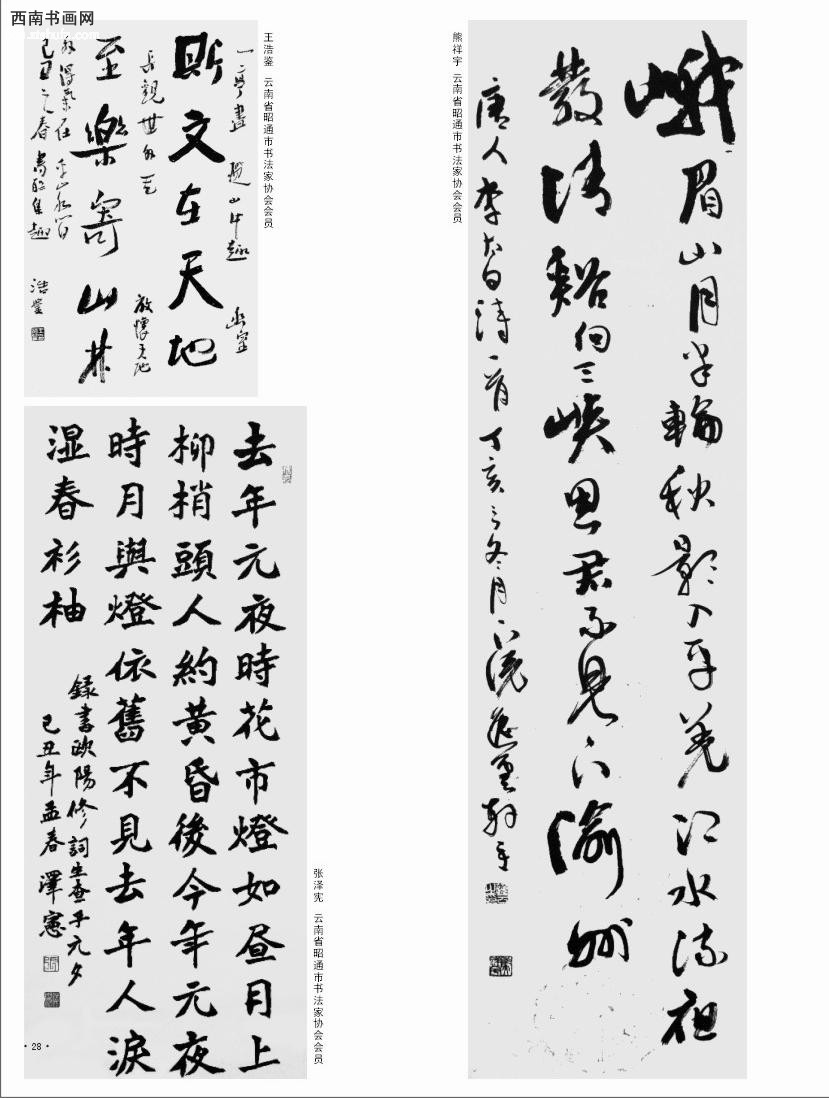 西南书画网
熊祥宇 云南省昭通市书法家协会会员
峨眉山月半轮秋影入平羌江水流祖
發清谿向三峡思君不见下渝州
唐人李太白诗一首丁亥之冬月
王浩鉴 云南省昭通市书法家协会会员
斯文在天地
至樂寄山林
放懷天地
己丑之春
浩鉴
张泽宪 云南省昭通市书法家协会会员
去年元夜時花市燈如昼月上
柳梢頭人約黄昏後今年元夜
時月與燈依舊不見去年人淚
湿春衫柚
録書欧陽修詞生查子元夕
己丑年孟春澤憲
·28·